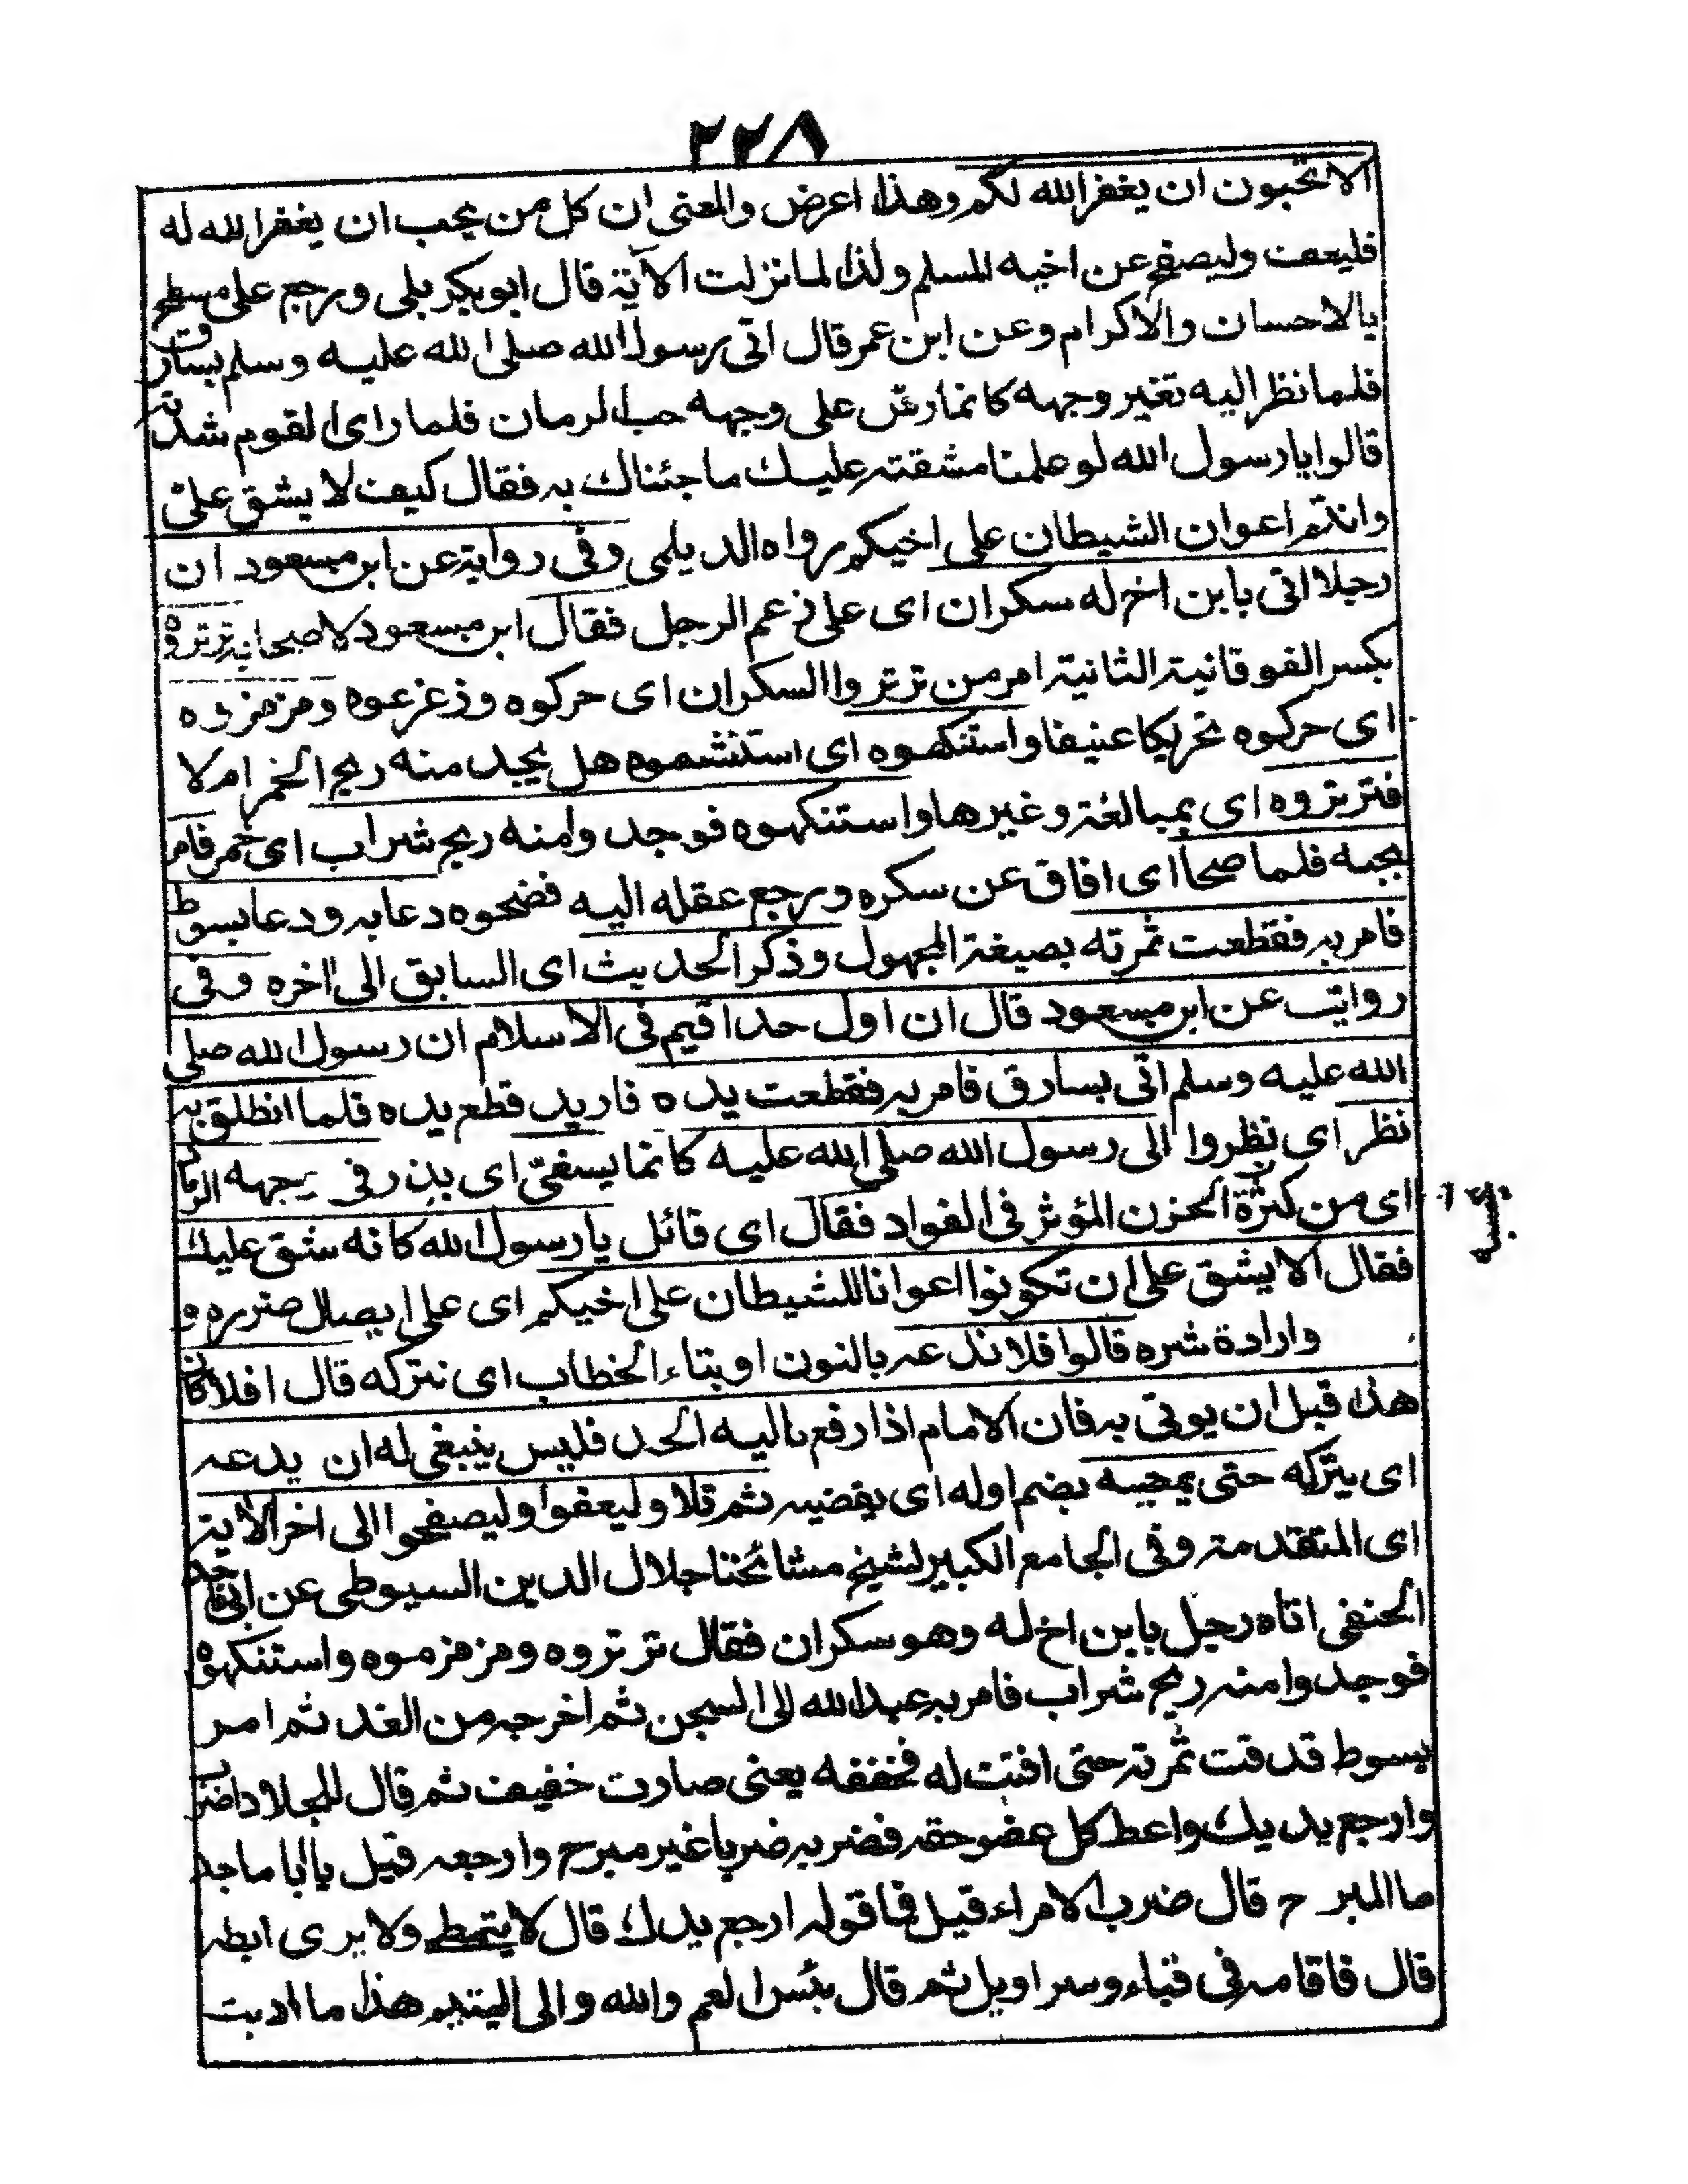 ٢٢٨
الا تحبون ان يغفر الله لكم وهذا اعرض والمعنى ان كل من يحب ان يغفر الله له
فليعف وليصفح عن اخيه المسلم ولذا لما نزلت الآية قال ابو بكر بلى ورجع على مسطح
بالاحسان والاكرام وعن ابن عمر قال اتى رسول الله صلى الله عليه وسلم بسارق
فلما نظر اليه تغير وجهه كانما رش على وجهه حب الرمان فلما راى القوم شدته
قالوا يا رسول الله لو علمنا مشقته عليك ما جئناك به فقال كيف لا يشق علىّ
وانتم اعوان الشيطان على اخيكم رواه الديلمى وفى رواية عن ابن مسعود ان
رجلا اتى بابن اخ له سكران اى على زعم الرجل فقال ابن مسعود لاصحابه ترتروه
بكسر الفوقانية الثانية امر من ترتروا السكران اى حركوه وزعزعوه ومزمزوه
اى حركوه تحريكا عنيفا واستنكهوه اى استنشموه هل يجد منه ريح الخمر ام لا
فترتروه اى بمبالغة وغيرها واستنكهوه فوجدوا منه ريح شراب اى خمر فامر
بحبسه فلما صحا اى افاق عن سكره ورجع عقله اليه فضحوه دعا به ودعا بسوط
فامر به فقطعت ثمرته بصيغة المجهول وذكر الحديث اى السابق الى اخره وفى
رواية عن ابن مسعود قال ان اول حد اقيم فى الاسلام ان رسول الله صلى
الله عليه وسلم اتى بسارق فامر به فقطعت يده فاريد قطع يده فلما انطلق به
نظر اى نظروا الى رسول الله صلى الله عليه كانما يسفى اى يذر فى وجهه الرماد
اى من كثرة الحزن المؤثر فى الفواد فقال اى قائل يا رسول الله كانه شق عليك
فقال الا يشق على ان تكونوا اعوانا للشيطان على اخيكم اى على ايصال ضرره و
وارادة شره قالوا فلا ندعه بالنون او بتاء الخطاب اى نتركه قال افلا كان
هذا قبل ان يوتى به فان الامام اذا رفع اليه الحد فليس ينبغى له ان يدعه
اى يتركه حتى يمضيه بضم اوله اى يقضيه ثم تلا وليعفوا وليصفحوا الى اخر الآية
اى المتقدمة وفى الجامع الكبير لشيخ مشائخنا جلال الدين السيوطى عن ابى ماجد
الحنفى اتاه رجل بابن اخ له وهو سكران فقال ترتروه ومزمزموه واستنكهوه
فوجدوا منه ريح شراب فامر به عبد الله الى السجن ثم اخرجه من الغد ثم امر
بسوط قدقت ثمرته حتى افنت له فخففه يعنى صارت خفيف ثم قال للجلاد اضرب
وارجع يديك واعط كل عضو حقه فضربه ضربا غير مبرح وارجعه قيل يا ابا ماجد
ما المبرح قال ضرب الامراء قيل فما قوله ارجع يدك قال لا يتمطى ولا يرى ابطه
قال فاقامه فى قباء وسراويل ثم قال بئس العم والله والى اليتيم هذا ما ادبت